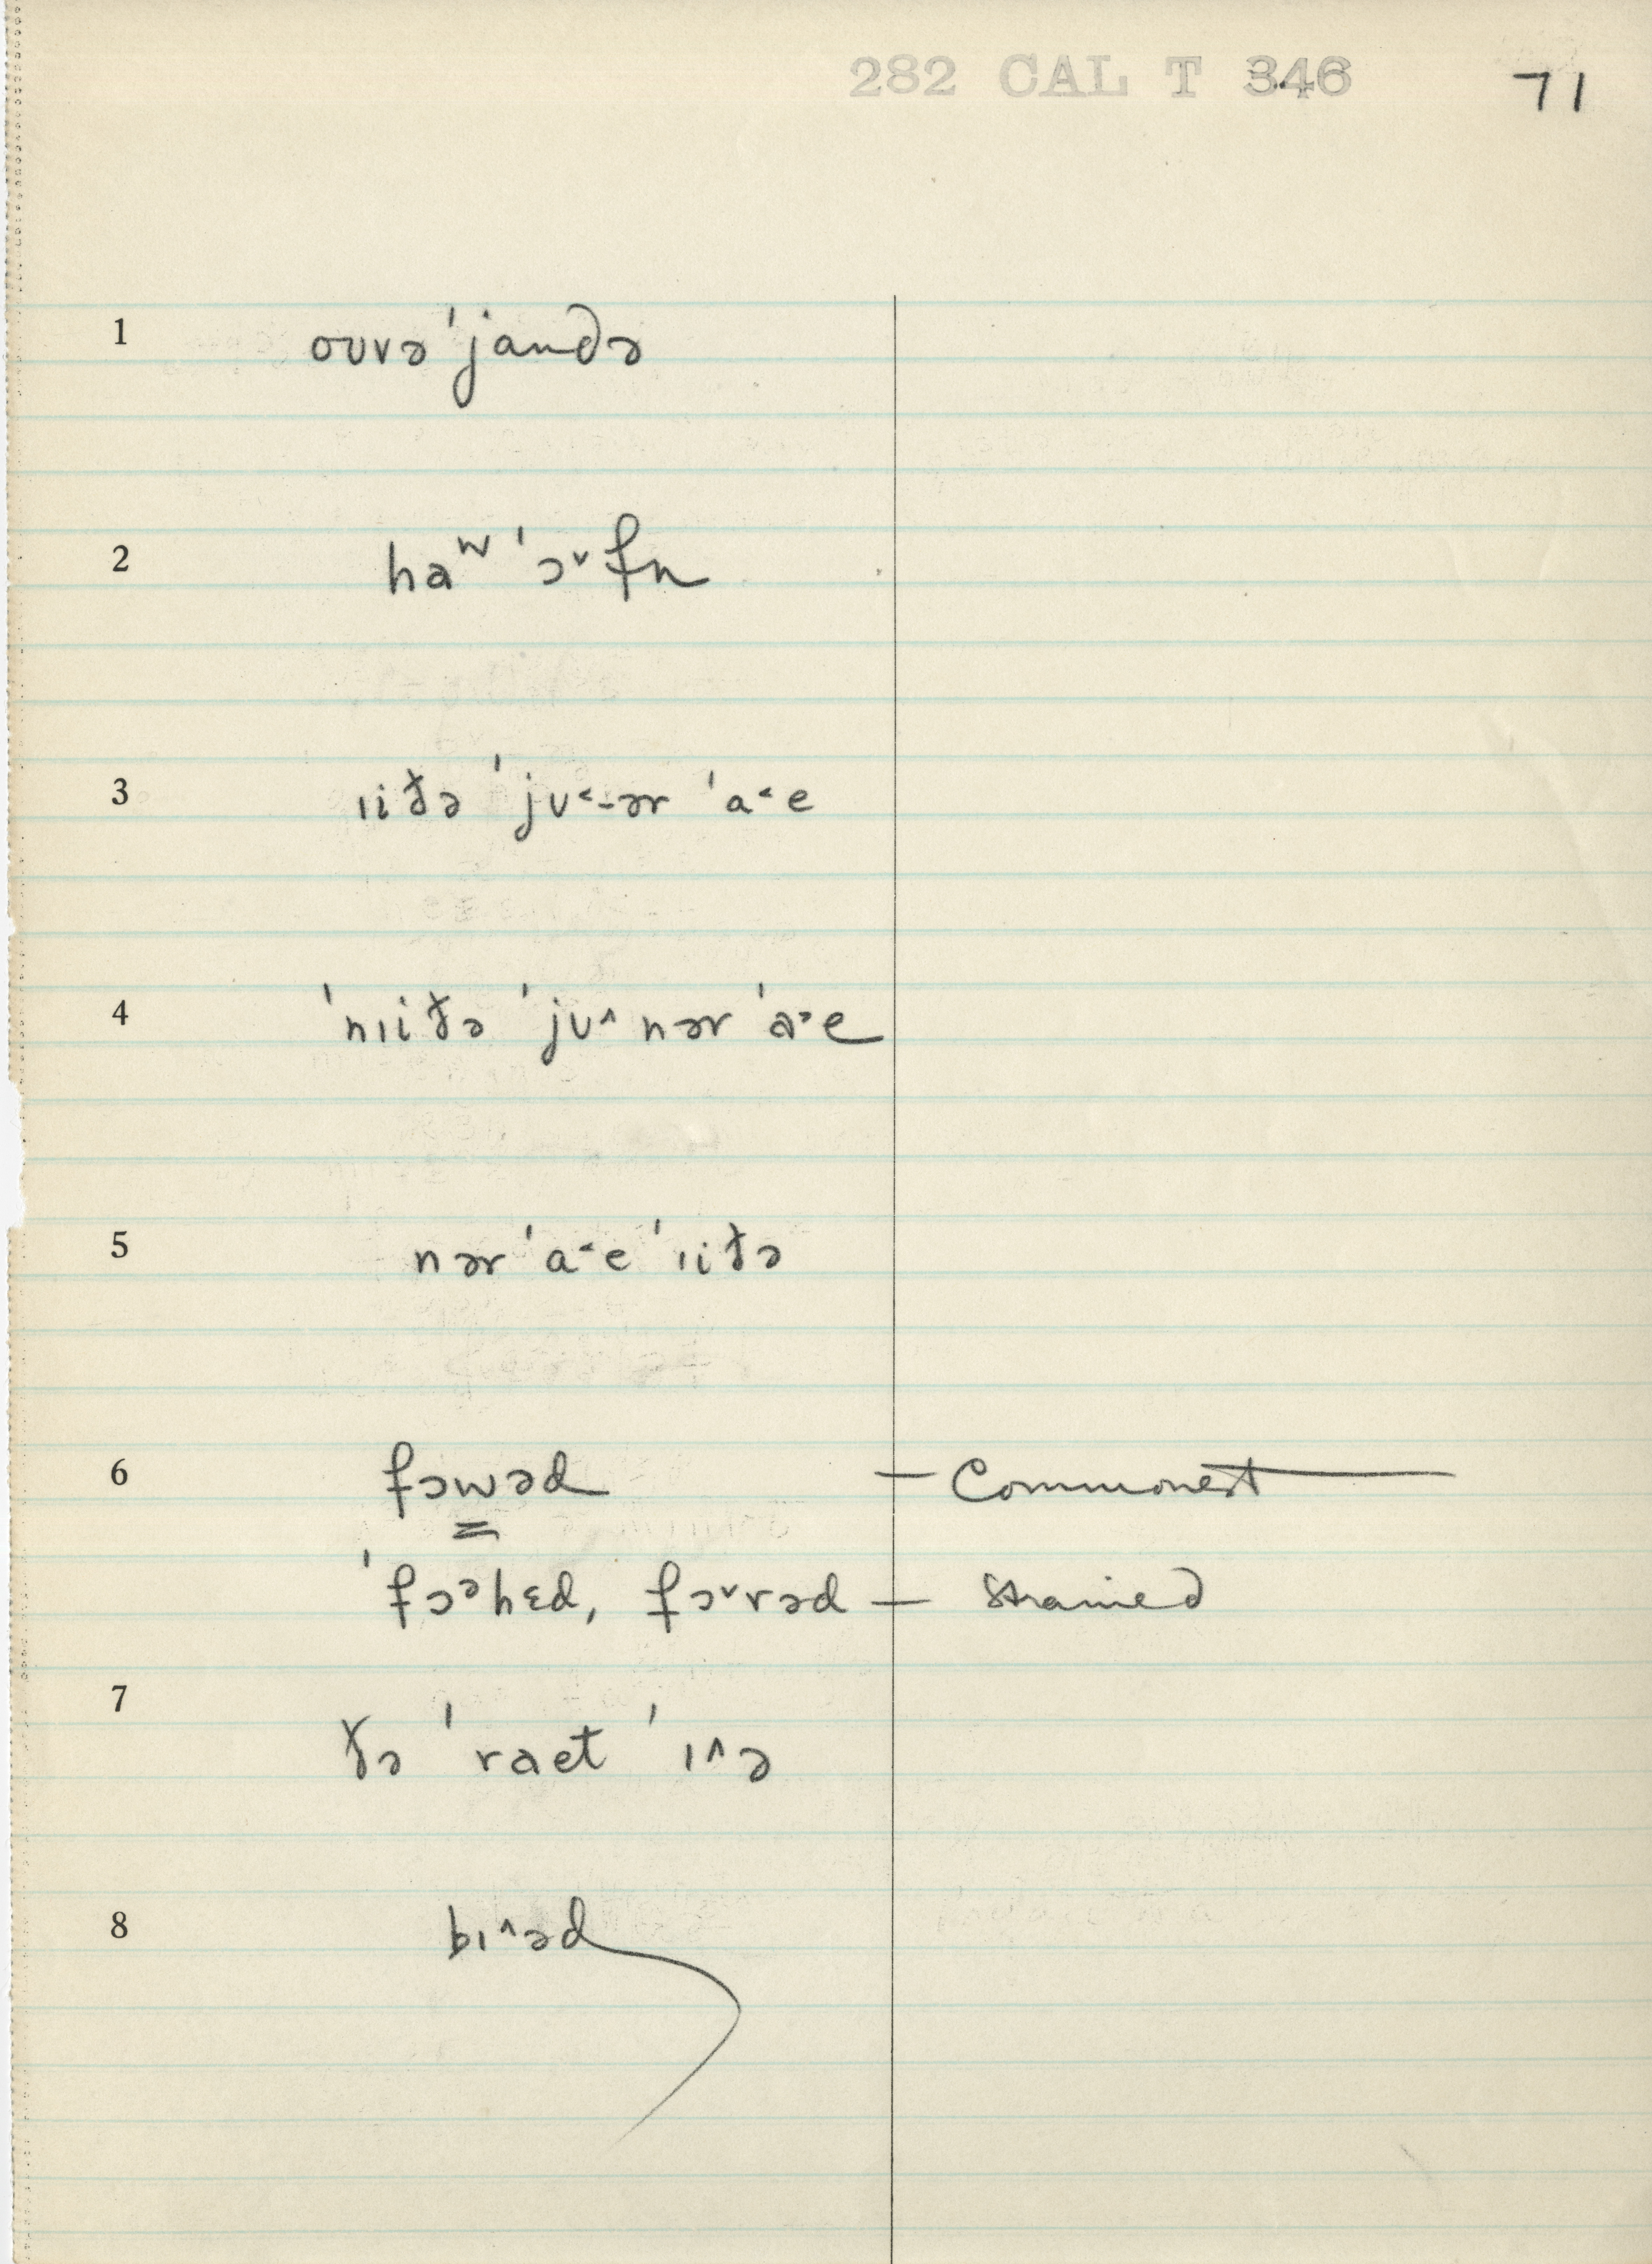 282 CAL T 346 71
1 oʊvəˈjɑndə
2 hɑʷˈɔ˅fn
3 ɪiðə ˈjʊ˂-ər ˈa˂e
4 ˈnɪiðə ˈjʊ˄ nər ˈa˃e
5 nər ˈa˂e ˈɪiðə
6 fɔwəd — Commonest
ˈfɔᵊhɛd, fɔ˅rəd — strained
7 ðə ˈraet ˈɪ˄ə
8 bɪ˄əd